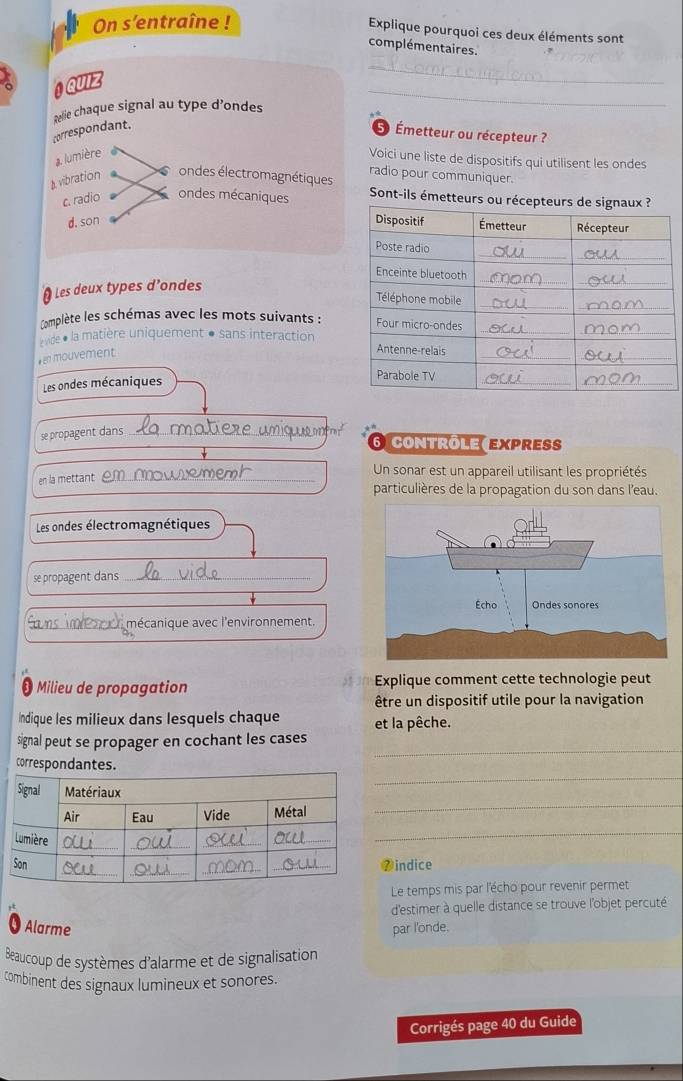 On s'entraîne !
1 QUIZ
Relie chaque signal au type d'ondes
correspondant.
a. lumière
b. vibration
c. radio
d. son
ondes électromagnétiques
ondes mécaniques
2 Les deux types d'ondes
Complète les schémas avec les mots suivants :
le vide • la matière uniquement • sans interaction
• en mouvement
Les ondes mécaniques
se propagent dans la matiere uniquement
en la mettant em mouvement
Les ondes électromagnétiques
se propagent dans le vide
Sans mécanique avec l'environnement.
3 Milieu de propagation
Indique les milieux dans lesquels chaque
signal peut se propager en cochant les cases
correspondantes.
Signal Matériaux
Air Eau Vide Métal
Lumière oui oui oui oui
Son oui oui mom oui
4 Alarme
Beaucoup de systèmes d'alarme et de signalisation
combinent des signaux lumineux et sonores.
Explique pourquoi ces deux éléments sont
complémentaires.
5 Émetteur ou récepteur ?
Voici une liste de dispositifs qui utilisent les ondes
radio pour communiquer.
Sont-ils émetteurs ou récepteurs de signaux ?
Dispositif Émetteur Récepteur
Poste radio oui oui
Enceinte bluetooth mom oui
Téléphone mobile oui mom
Four micro-ondes oui mom
Antenne-relais oui oui
Parabole TV oui mom
6 CONTRÔLE EXPRESS
Un sonar est un appareil utilisant les propriétés
particulières de la propagation du son dans l'eau.
Écho Ondes sonores
Explique comment cette technologie peut
être un dispositif utile pour la navigation
et la pêche.
? indice
Le temps mis par l'écho pour revenir permet
d'estimer à quelle distance se trouve l'objet percuté
par l'onde.
Corrigés page 40 du Guide